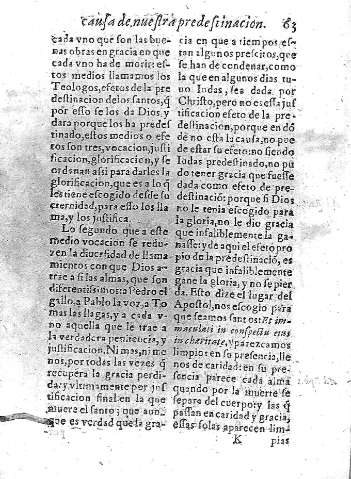 causa de nuestra predestinacion. 63
cada vno que son las bue-
nas obras en gracia en que
cada vno ha de morir: es-
tos medios llamamos los
Teologos, efetos de la pre
destinacion de los santos, q̃
por esso se los da Dios, y
dara porque los ha predes
tinado, estos medios o efe
tos son tres, vocacion, justi
ficacion, glorificacion, y se
ordenan assi para darles la
glorificacion, que es a lo q̃
les tiene escogido desde su
eternidad, para esso los lla
ma, y los justifica.
Lo segundo que a este
medio vocacion se redu-
zen la diuersidad de llama
mientos con que Dios a-
trae a si las almas, que son
diferentissimos a Pedro el
gallo, a Pablo la voz, a To
mas las llagas, y a cada v-
no aquella que le trae a
la verdadera penitencia, y
justificacion. Ni mas, ni me
nos, por todas las vezes q̃
recupera la gracia perdi-
da: y vltimamente por jus
tificacion final en la que
muere el santo; que aun-
que es verdad que la gra-
cia en que a tiempos es-
tan algunos prescitos, que
se han de condenar, como
la que en algunos dias tu-
uo Iudas, sea dada por
Christo, pero no es essa jus
tificacion efeto de la pre-
destinacion, porque en dõ
de no esta la causa, no pue
de estar su efeto: no siendo
Iudas predestinado, no pu
do tener gracia que fuesse
dada como efeto de pre-
destinaciõ: porque si Dios
no le tenia escogido para
la gloria, no le dio gracia
que infaliblemente la ga-
nasse: y de aqui el efeto pro
pio de la predestinaciõ, es
gracia que infaliblemente
gane la gloria, y no se pier
da. Esto dize el lugar del
Apostol, nos escogio para
que seamos santos: Et im-
maculati in conspectu eius
in charitate, y parezcamos
limpios en su presencia, lle
nos de caridad: en su pre-
sencia parece cada alma
quando por la muerte se
separa del cuerpo: y las q̃
passan en caridad y gracia,
essas solas parecen lim-
K pias